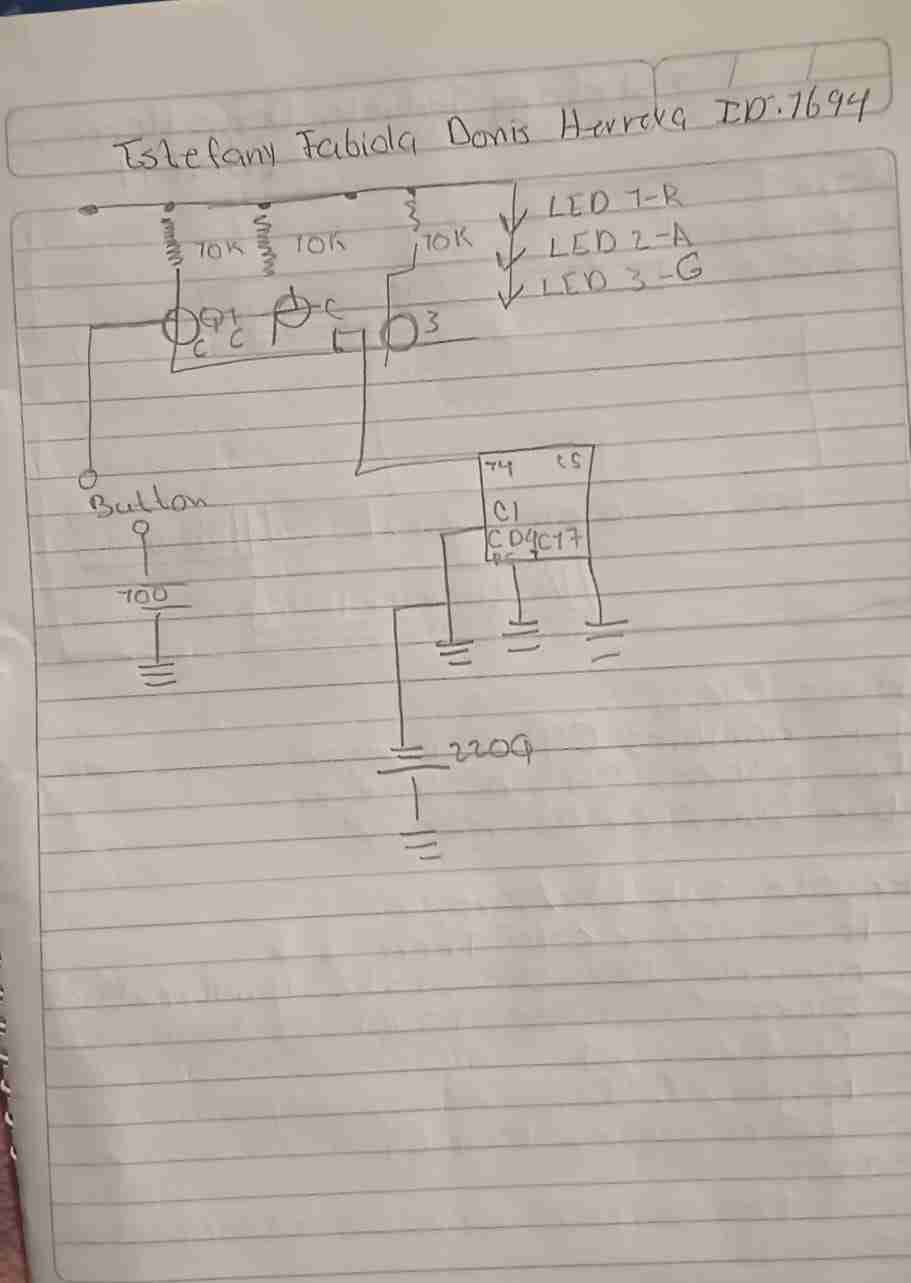 Estefany Fabiola Donis Herrera ID.1694
LED 1-R
10K 10K 10K LED 2-A
LED 3-G
Q1 C 3
C C
74 CS
Button C1
CD4C17
100
220Ω